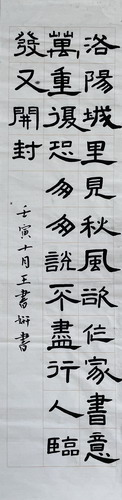 洛陽城里見秋風欲作家書意
萬重復恐匆匆説不盡行人臨
發又開封
壬寅十月王書妍書